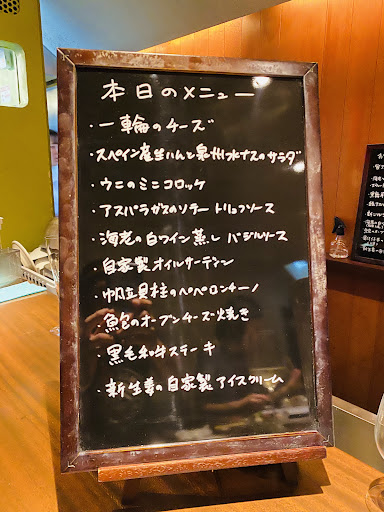 本日のメニュー
・一輪のチーズ
・スペイン産生ハムと泉州水ナスのサラダ
・ウニのミニコロッケ
・アスパラガスのソテー トリュフソース
・海老の白ワイン蒸し バジルソース
・自家製オイルサーディン
・帆立貝柱のペペロンチーノ
・鮑のオーブンチーズ焼き
・黒毛和牛ステーキ
・新生姜の自家製アイスクリーム